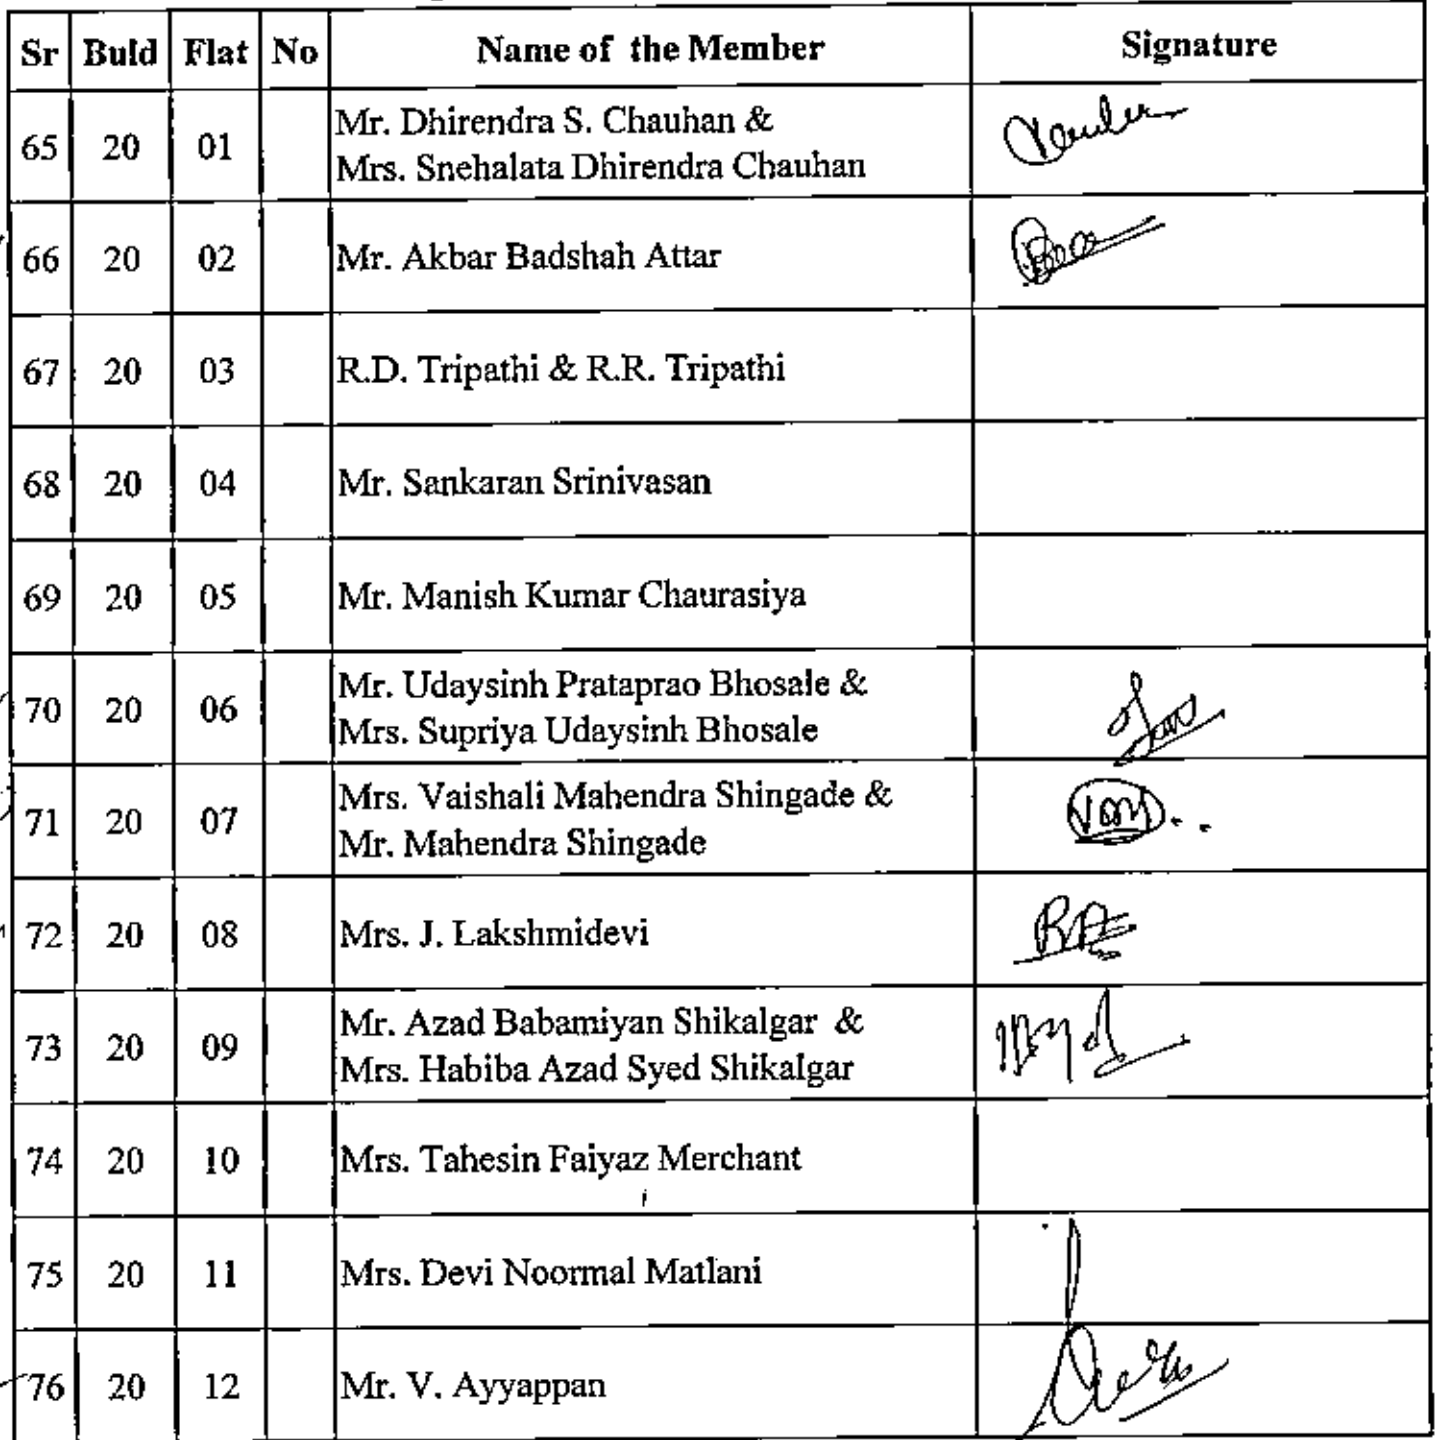 Sr Buld Flat No Name of the Member Signature
65 20 01 Mr. Dhirendra S. Chauhan &
Mrs. Snehalata Dhirendra Chauhan
66 20 02 Mr. Akbar Badshah Attar
67 20 03 R.D. Tripathi & R.R. Tripathi
68 20 04 Mr. Sankaran Srinivasan
69 20 05 Mr. Manish Kumar Chaurasiya
70 20 06 Mr. Udaysinh Prataprao Bhosale &
Mrs. Supriya Udaysinh Bhosale
71 20 07 Mrs. Vaishali Mahendra Shingade &
Mr. Mahendra Shingade
72 20 08 Mrs. J. Lakshmidevi
73 20 09 Mr. Azad Babamiyan Shikalgar &
Mrs. Habiba Azad Syed Shikalgar
74 20 10 Mrs. Tahesin Faiyaz Merchant
75 20 11 Mrs. Devi Noormal Matlani
76 20 12 Mr. V. Ayyappan